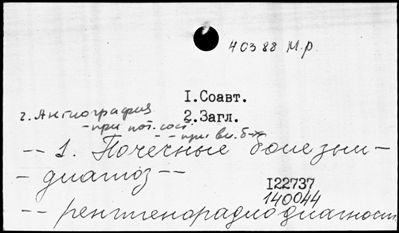 40388 М.р.
1.Соавт.
2.Загл.
2. Ангиография
-при пат. сост.
-при вн. б-х
-- 1. Почечные болезни -
- диагноз --
I22737
140044
-- рентгенорадиодиагност